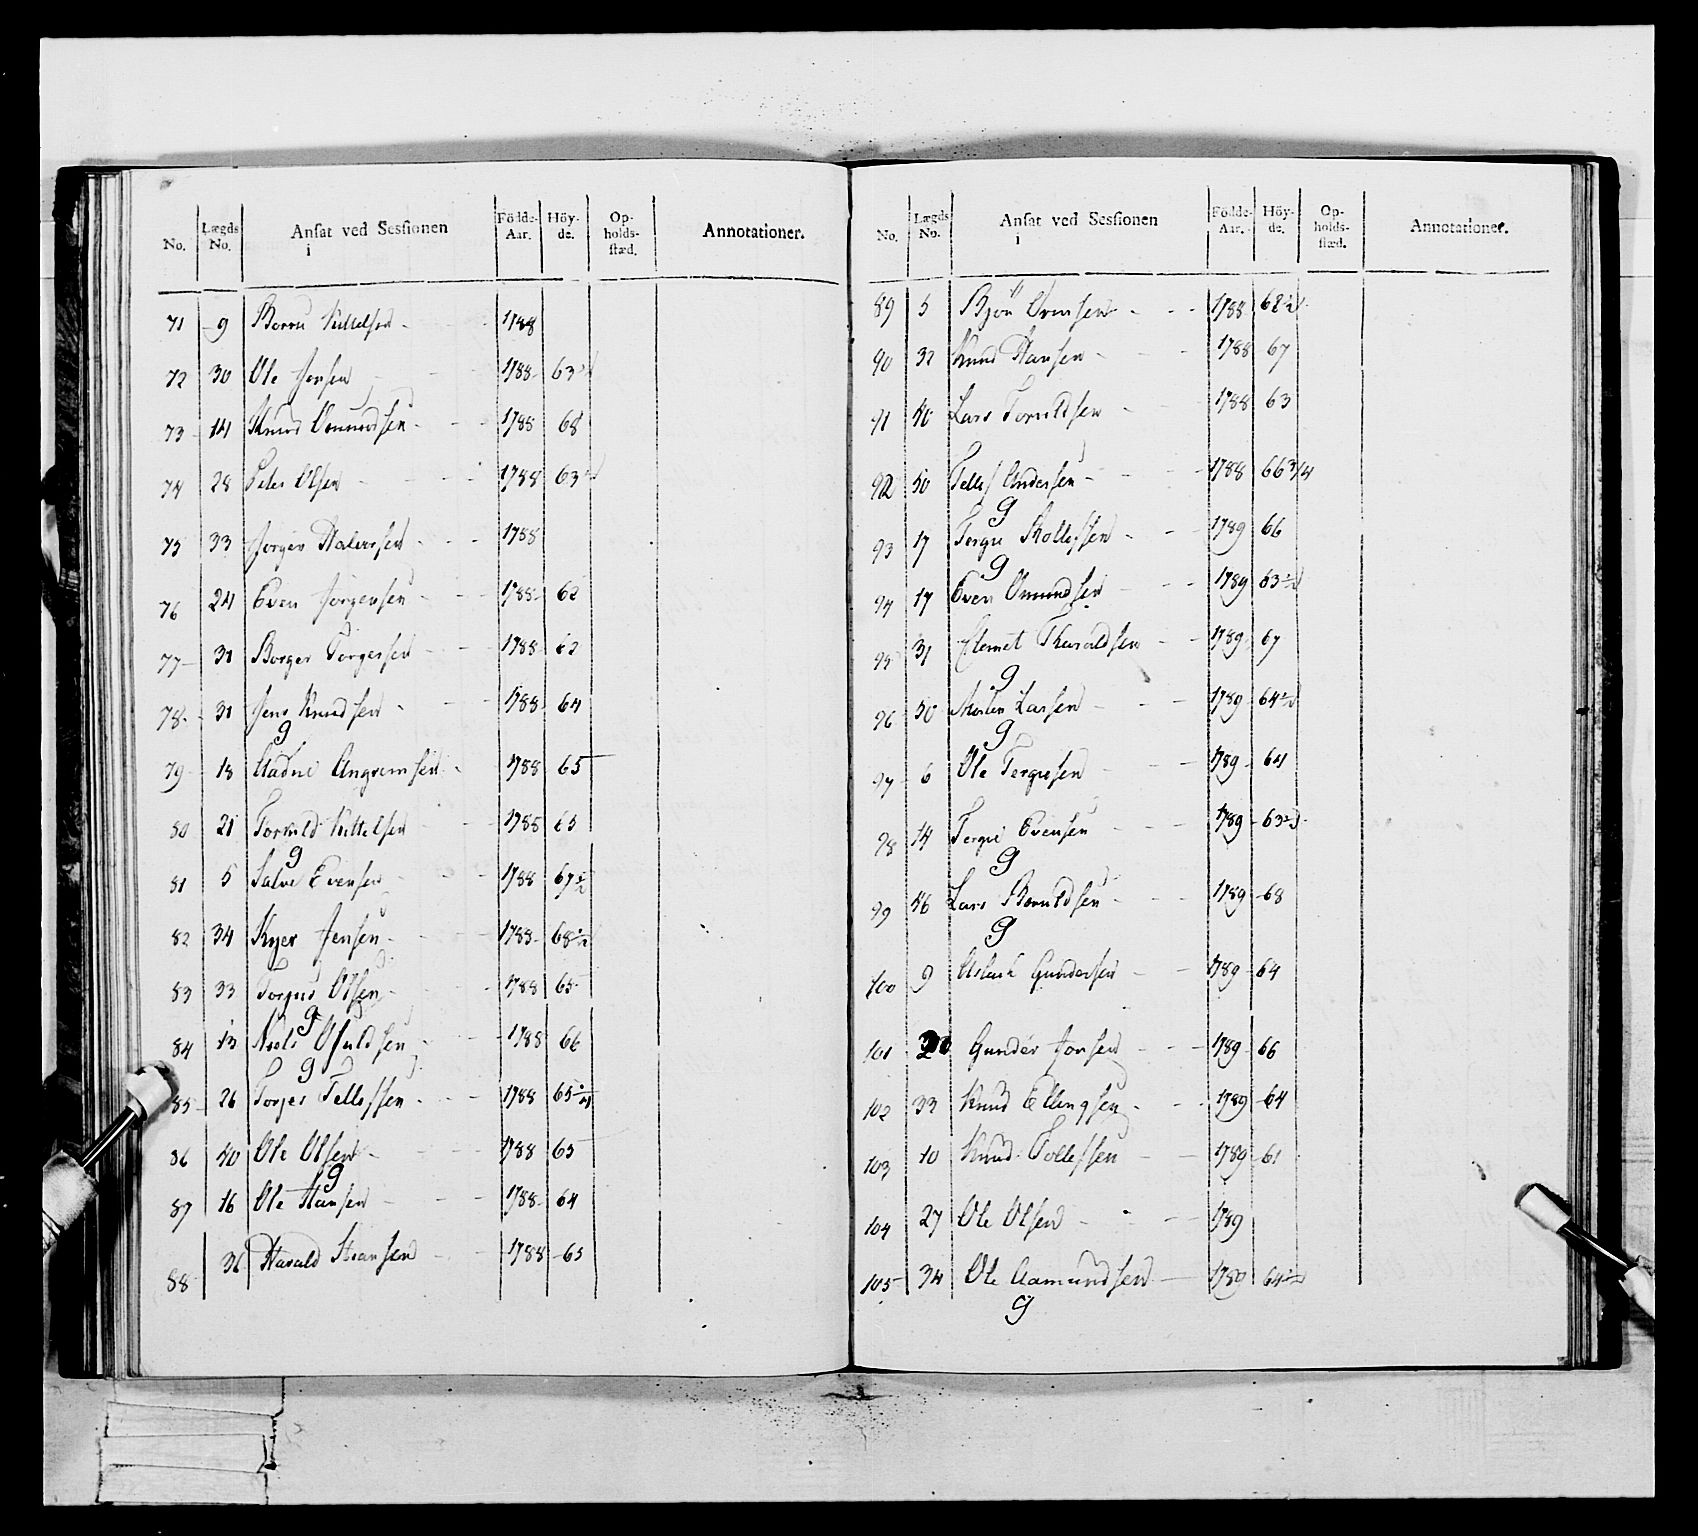 No. Lægds No. Ansat ved Sessionen i Födde-Aar. Höy-de. Op-holds-stæd. Annotationer.
71 9 Kittelsen - 1788
72 30 Ole Jensen 1788 63 1/2
73 14 Knud Omundsen - 1788 68
74 28 Peder Olsen - 1788 63 1/2
75 33 Jörgen Halvorsen - 1788
76 24 Even Jörgensen - 1788 62
77 31 Börger Torgersen - 1788 62
78 31 Jens Knudsen - 1788 64
g
79 18 Aadne Angremsen - 1788 65
80 21 Torkild Kittelsen 1788 65
g
81 5 Salve Evensen 1788 67 1/2
82 34 Jensen - 1788 68 1/2
83 33 Torgus Olsen - 1788 65
g
84 13 Niels Osuldsen - 1788 66
g
85 26 Torjer Tellefsen - 1788 65 1/4
86 40 Ole Olsen - 1788 65
g
87 16 Ole Hansen - 1788 64
88 36 Harald Hansen - 1788 65
No. Lægds No. Ansat ved Sessionen i Födde-Aar. Höy-de. Op-holds-stæd. Annotationer.
89 5 Björn Evensen - 1788 68 1/2
90 32 Knud Hansen - 1788 67
91 40 Lars Torkildsen - 1788 63
92 50 Tellef Andersen - 1788 66 3/4
g
93 17 Tergie Rollefsen - 1789 66
g
94 17 Even Omundsen 1789 63 1/2
95 31 Klemet Tharaldsen - 1789 67
g
96 50 Morten Larsen - 1789 64 1/2
g
97 6 Ole Tergiesen - 1789 64
98 14 Tergie Evensen - 1789 63 1/2
g
99 46 Lars - 1789 68
g
100 9 Aslach Gundersen - 1789 64
101 Gunder Jonsen - 1789 66
102 33 Knud Ellingsen - 1789 64
103 10 Knud Tollefsen - 1789 61
104 27 Ole Olsen - 1789
105 34 Ole Aamundsen - 1789 64 1/2
g